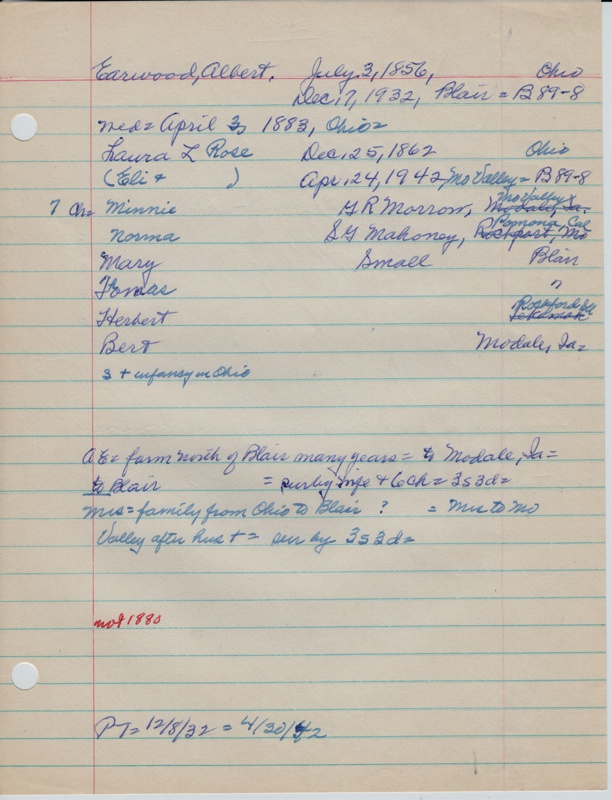 Earwood, Albert. July 3, 1856, Ohio
Dec. 7, 1932, Blair = B89-8
med = April 3, 1883, Ohio =
Laura L Rose Dec. 25, 1862 Ohio
(Eli + ) Apr. 24, 1942, Mo Valley = B89-8
7 Ch = Minnie G R Morrow, Modale, Ia. Mo Valley
Norma S G Mahoney, Rockport, Mo Pomona Cal
Mary Small Blair
Thomas "
Herbert Tekamah Rockford Ill
Bert Modale, Ia =
s + infancy in Ohio
AE = farm north of Blair many years = to Modale, Ia =
to Blair = sur by wife + 6 Ch = 3s 3d =
Mrs = family from Ohio to Blair ? = Mrs to Mo
Valley after hus + = sur by 3s 3d =
not 1880
PT = 12/8/32 = 4/30/42